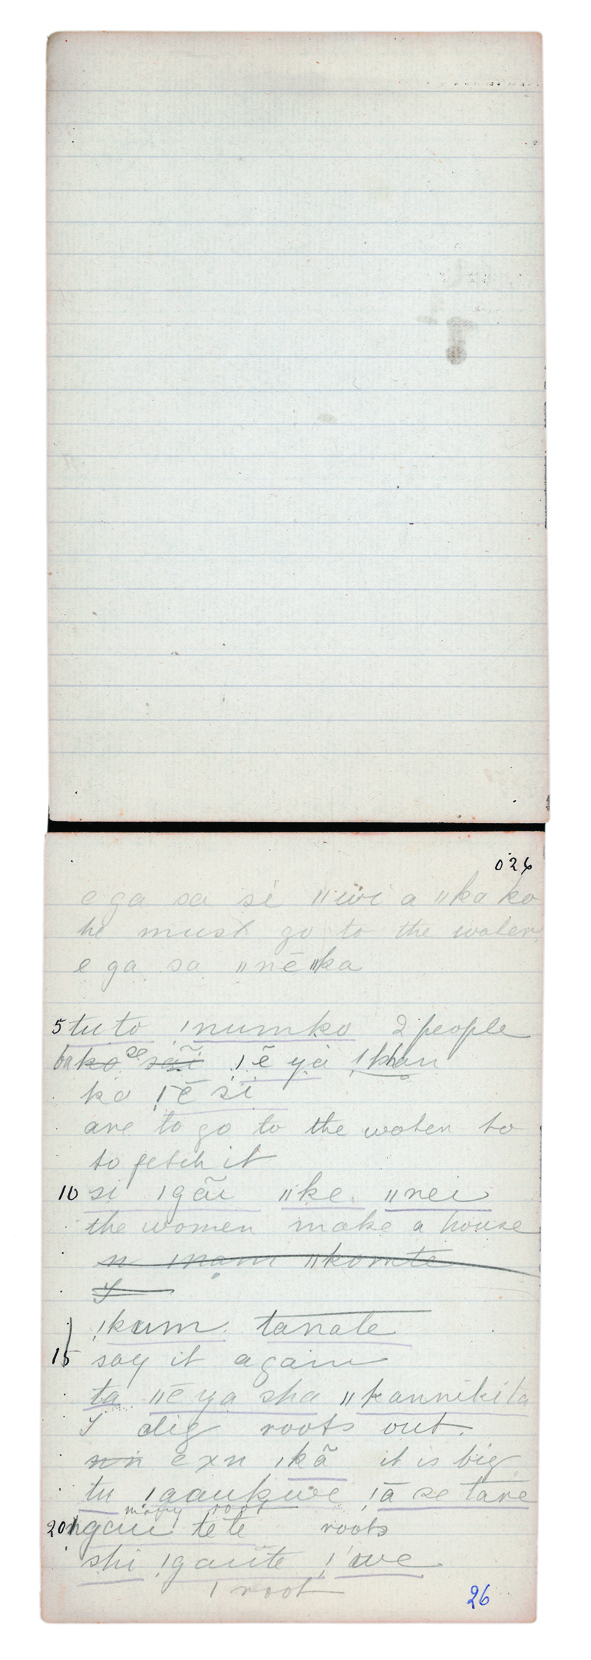 026
e ga sa si ǁwi a ǁka ko
he must go to the water
e ga sa ǁnē ǁka
5 tu to ǀnumko 2 people
se ǀē ya ǀkhan
ko ǀē si
are to go to the water to
to fetch it
10 si ǀgãi ǁke ǁnei
the women make a house
n ǀnam ǁkomte
I
ǀkum tanate
15 say it again
ta ǁē ya sha ǁkannikita
I dig roots out.
exn ǀkã it is big
tu ǀgaukwe ǀā se tare
many root
20 ngau te te roots
shi ǀgaute ǀwe
1 root
26